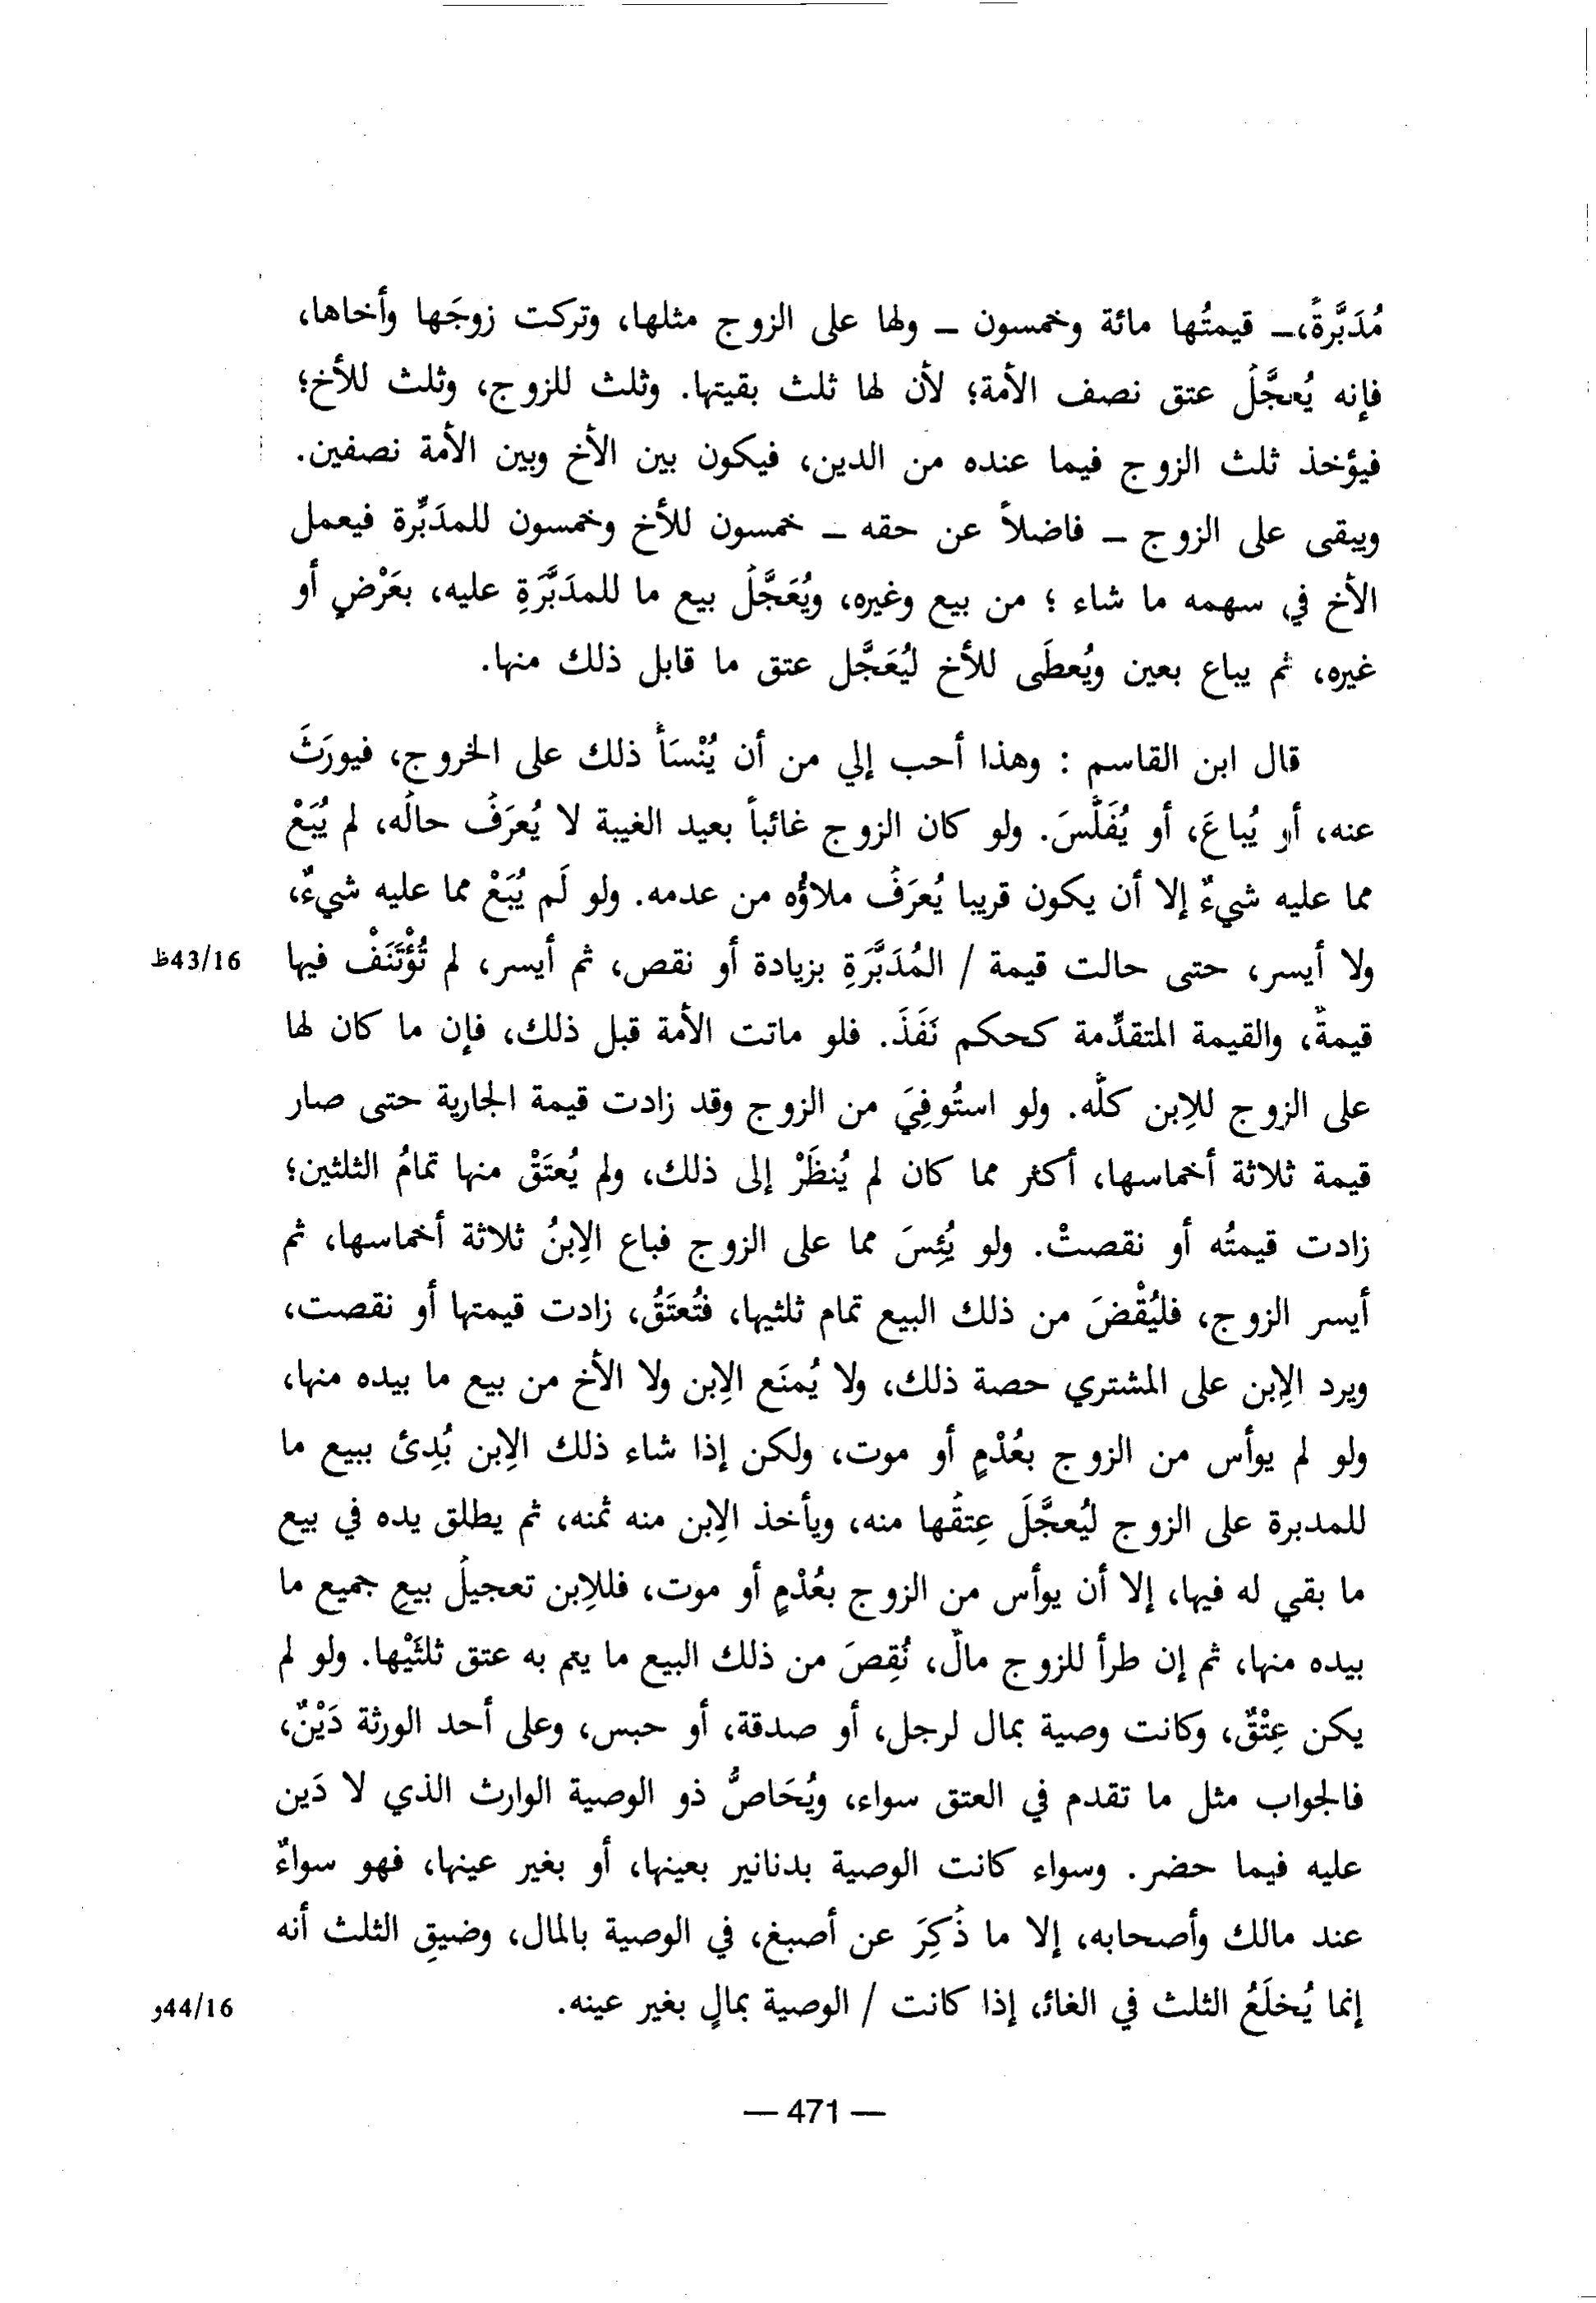 مُدَبَّرةً،ـ قيمتُها مائة وخمسون ـ ولها على الزوج مثلها، وتركت زوجَها وأخاها،
فإنه يُعجَّلُ عتق نصف الأمة؛ لأن لها ثلث بقيتها. وثلث للزوج، وثلث للأخ؛
فيؤخذ ثلث الزوج فيما عنده من الدين، فيكون بين الأخ وبين الأمة نصفين.
ويبقى على الزوج ـ فاضلاً عن حقه ـ خمسون للأخ وخمسون للمدَبِّرة فيعمل
الأخ في سهمه ما شاء ؛ من بيع وغيره، ويُعَجَّلُ بيع ما للمدَبَّرَةِ عليه، بعَرْضٍ أو
غيره، ثم يباع بعين ويُعطَى للأخ ليُعَجَّل عتق ما قابل ذلك منها.
قال ابن القاسم : وهذا أحب إلي من أن يُنْسَأَ ذلك على الخروج، فيورَثَ
عنه، أو يُباعَ، أو يُفَلَّسَ. ولو كان الزوج غائباً بعيد الغيبة لا يُعرَفُ حالُه، لم يُبَعْ
مما عليه شيءٌ إلا أن يكون قريبا يُعرَفُ ملاؤُه من عدمه. ولو لَم يُبَعْ مما عليه شيءٌ،
ولا أيسر، حتى حالت قيمة / المُدَبَّرَةِ بزيادة أو نقص، ثم أيسر، لم تُؤْتَنَفْ فيها
43/16ظ
قيمةٌ، والقيمة المتقدِّمة كحكم نَفَذَ. فلو ماتت الأمة قبل ذلك، فإن ما كان لها
على الزوج للاِبن كلَّه. ولو استُوفِيَ من الزوج وقد زادت قيمة الجارية حتى صار
قيمة ثلاثة أخماسها، أكثر مما كان لم يُنظَرْ إلى ذلك، ولم يُعتَقْ منها تمامُ الثلثين؛
زادت قيمتُه أو نقصتْ. ولو يُئِسَ مما على الزوج فباع الاِبنُ ثلاثة أخماسها، ثم
أيسر الزوج، فليُقْضَ من ذلك البيع تمام ثلثيها، فتُعتَقُ، زادت قيمتها أو نقصت،
ويرد الاِبن على المشتري حصة ذلك، ولا يُمنَع الاِبن ولا الأخ من بيع ما بيده منها،
ولو لم يوأس من الزوج بعُدْمٍ أو موت، ولكن إذا شاء ذلك الاِبن بُدِئ ببيع ما
للمدبرة على الزوج ليُعجَّلَ عِتقُها منه، ويأخذ الاِبن منه ثمنه، ثم يطلق يده في بيع
ما بقي له فيها، إلا أن يوأس من الزوج بعُدْمٍ أو موت، فللاِبن تعجيلُ بيعِ جميع ما
بيده منها، ثم إن طرأ للزوج مالٌ، نُقِصَ من ذلك البيع ما يتم به عتق ثلثَيْها. ولو لم
يكن عِتْقٌ، وكانت وصية بمال لرجل، أو صدقة، أو حبس، وعلى أحد الورثة دَيْنٌ،
فالجواب مثل ما تقدم في العتق سواء، ويُحَاصُّ ذو الوصية الوارث الذي لا دَين
عليه فيما حضر. وسواء كانت الوصية بدنانير بعينها، أو بغير عينها، فهو سواءٌ
عند مالك وأصحابه، إلا ما ذُكِرَ عن أصبغ، في الوصية بالمال، وضيقِ الثلث أنه
إنما يُخلَعُ الثلث في الغائ، إذا كانت / الوصية بمالٍ بغير عينه.
44/16و
— 471 —